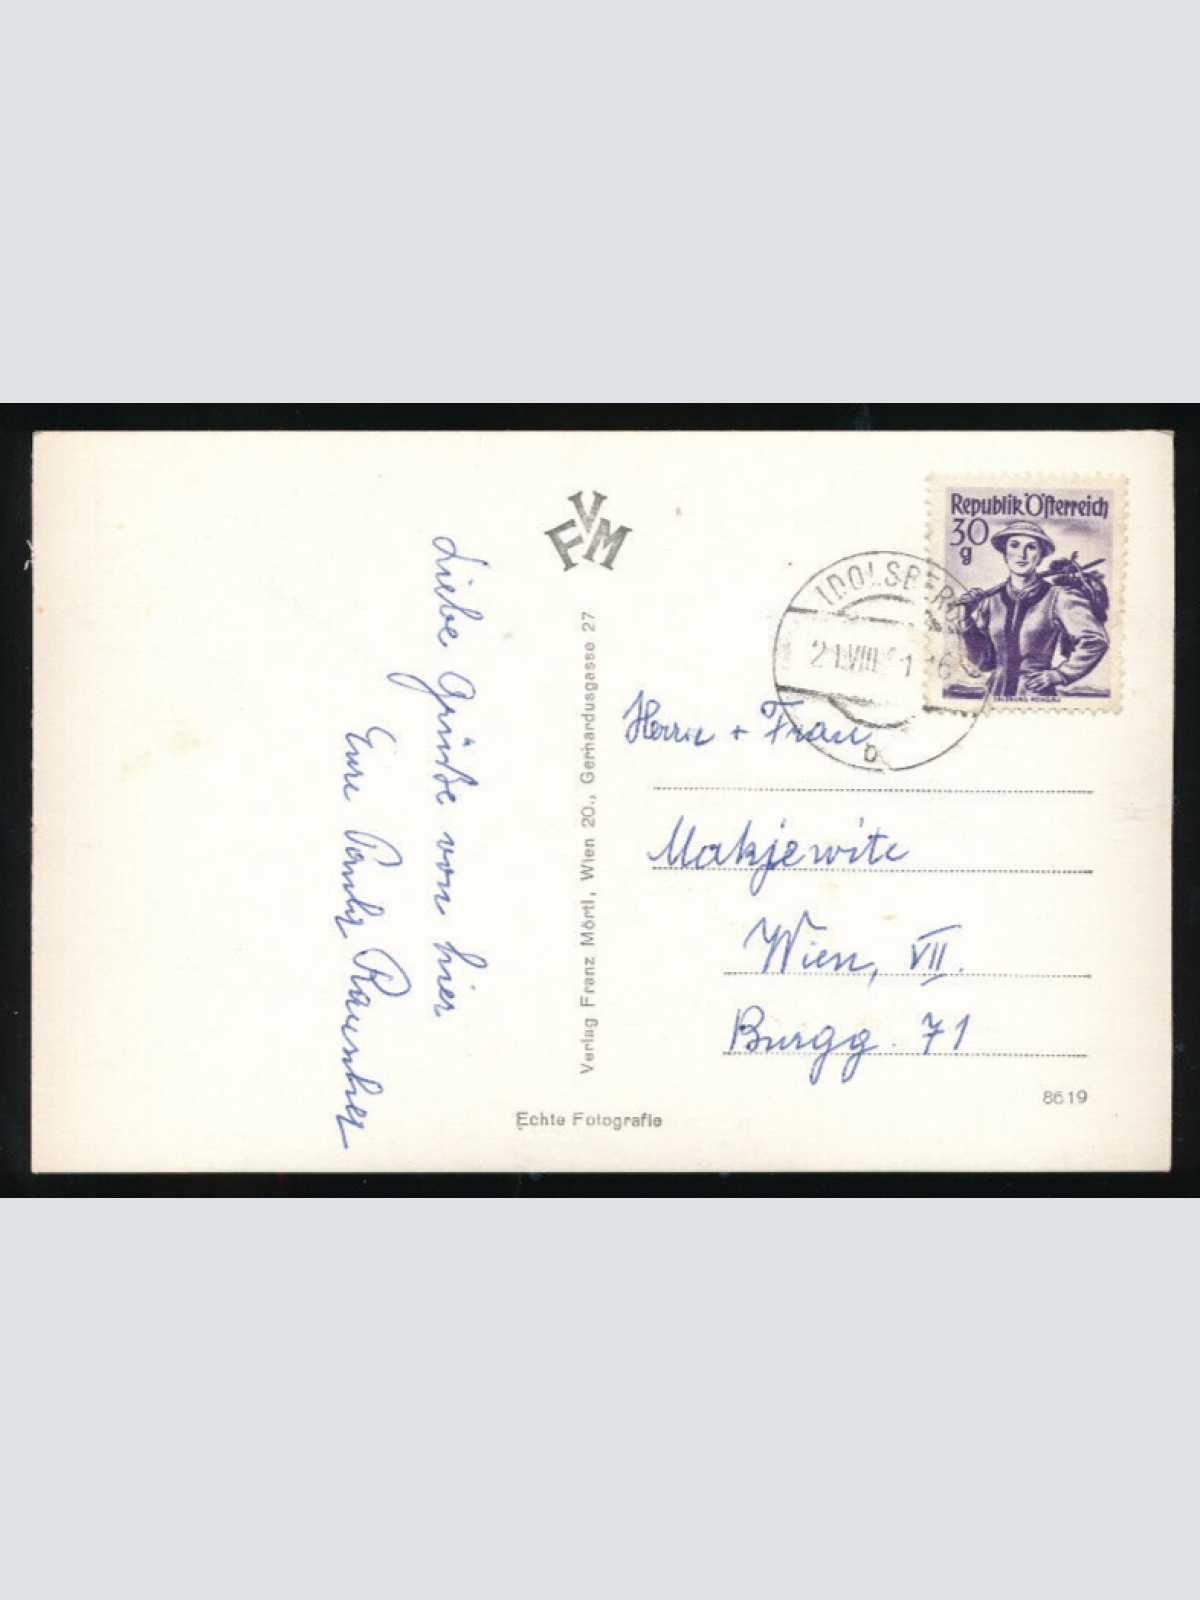 Liebe Grüße von hier
Eure
FVM
Verlag Franz Mörtl, Wien 20., Gerhardusgasse 27
Echte Fotografie
Republik Österreich
30
g
IDOLSBERG
21.VIII. 1 16
b
Herrn + Frau
Makjewitc
Wien, VII.
Burgg. 71
8619